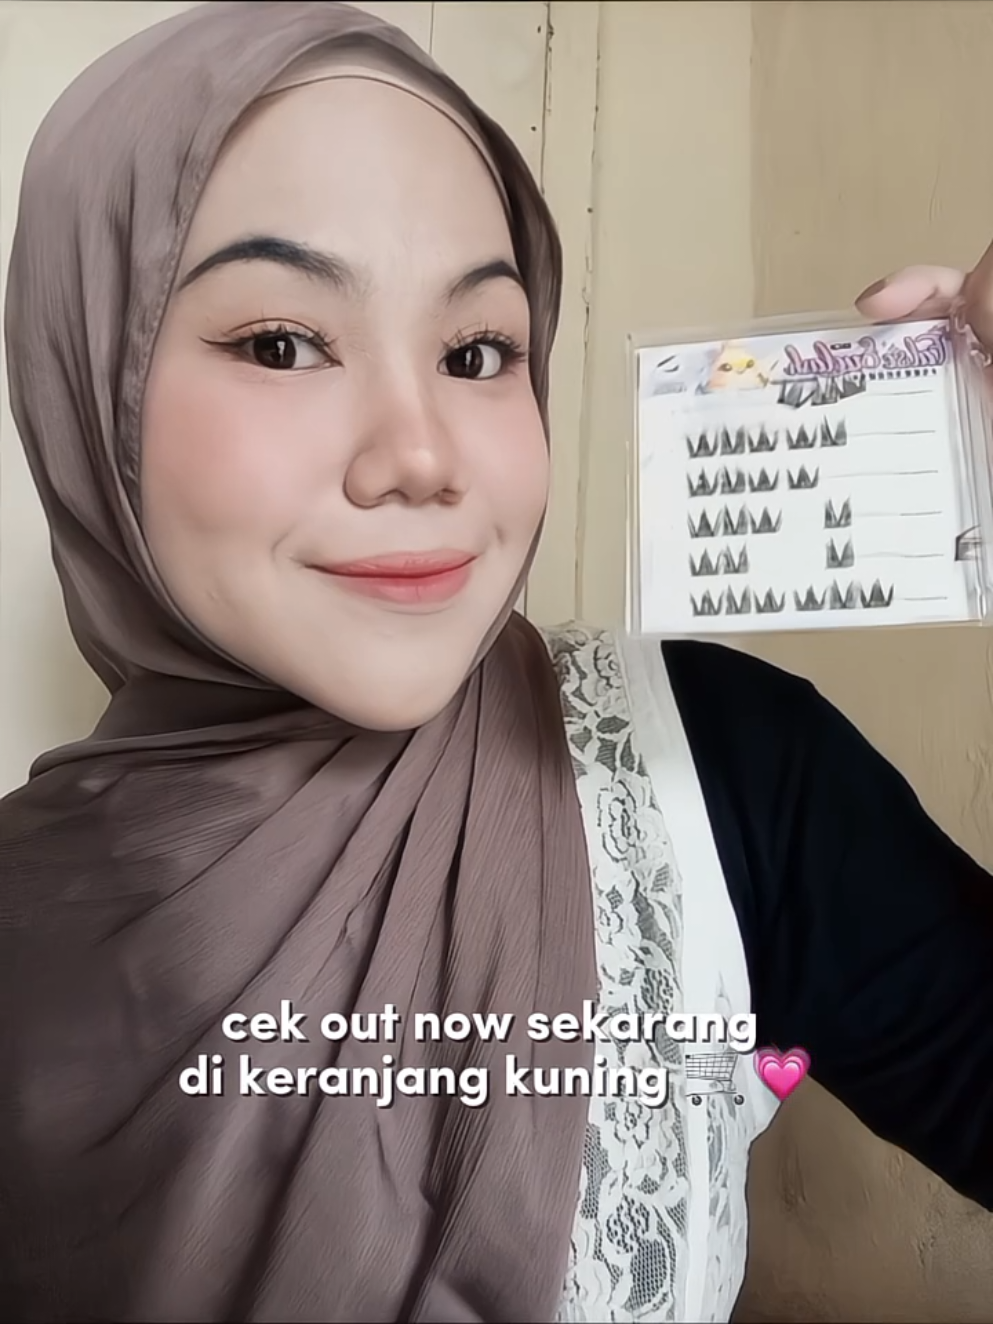 cek out now sekarang
di keranjang kuning 🛒💗